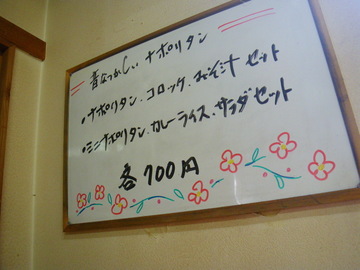 昔なつかしい ナポリタン
・ナポリタン、コロッケ、みそ汁 セット
・ミニナポリタン、カレーライス、サラダセット
各700円